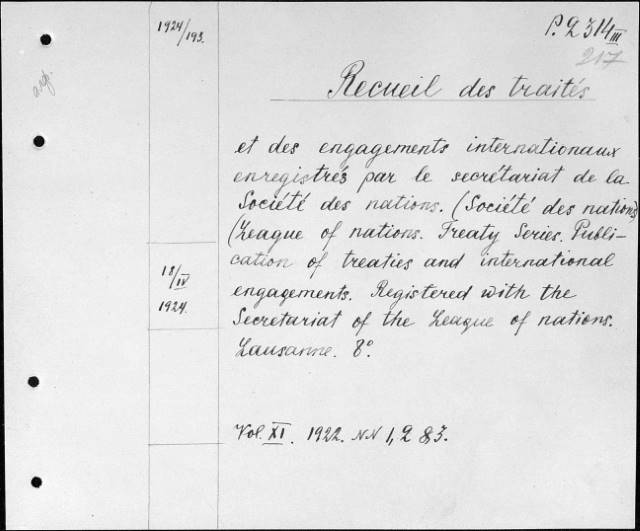 1924/193.
P. 2 314 III
217
Recueil des traités
et des engagements internationaux
enregistrés par le secrétariat de la
Société des nations. (Société des nations)
(League of nations. Treaty Series. Publi-
cation of treaties and international
18/IV
1924.
engagements. Registered with the
Secretariat of the League of nations.
Lausanne. 8°.
Vol. XI. 1922. NN 1, 2 & 3.